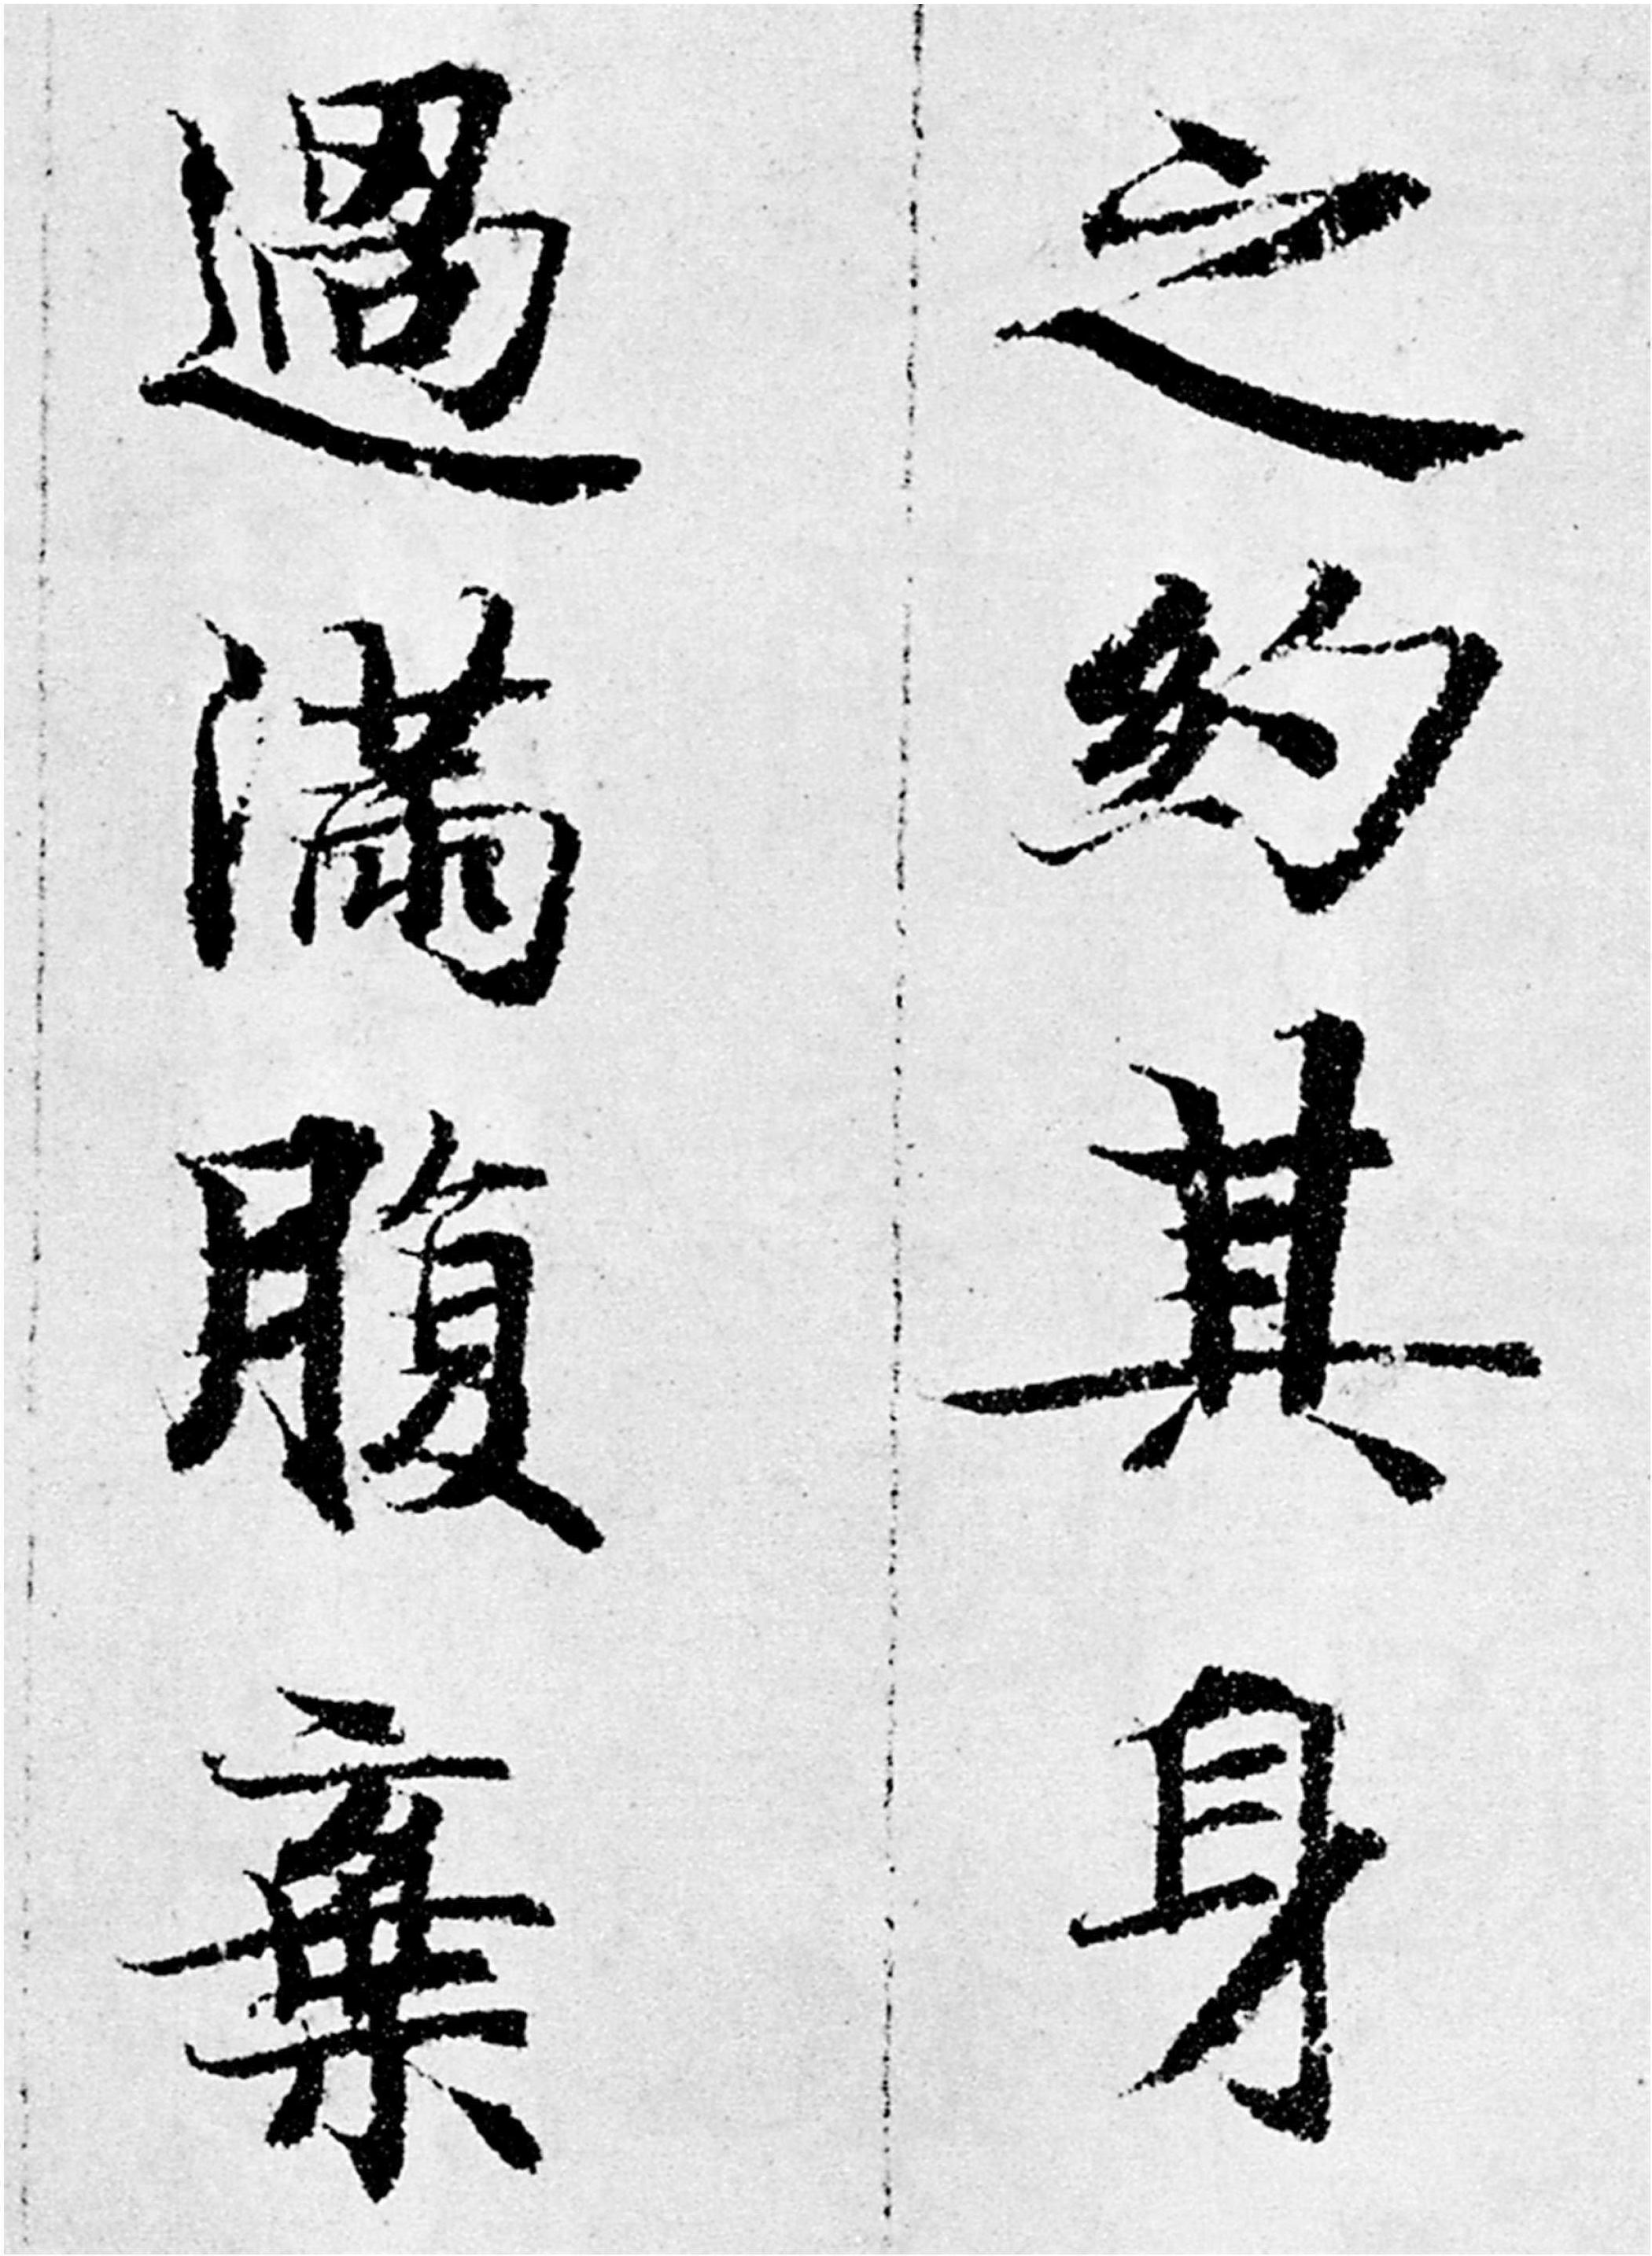 之約其身
過滿腹棄